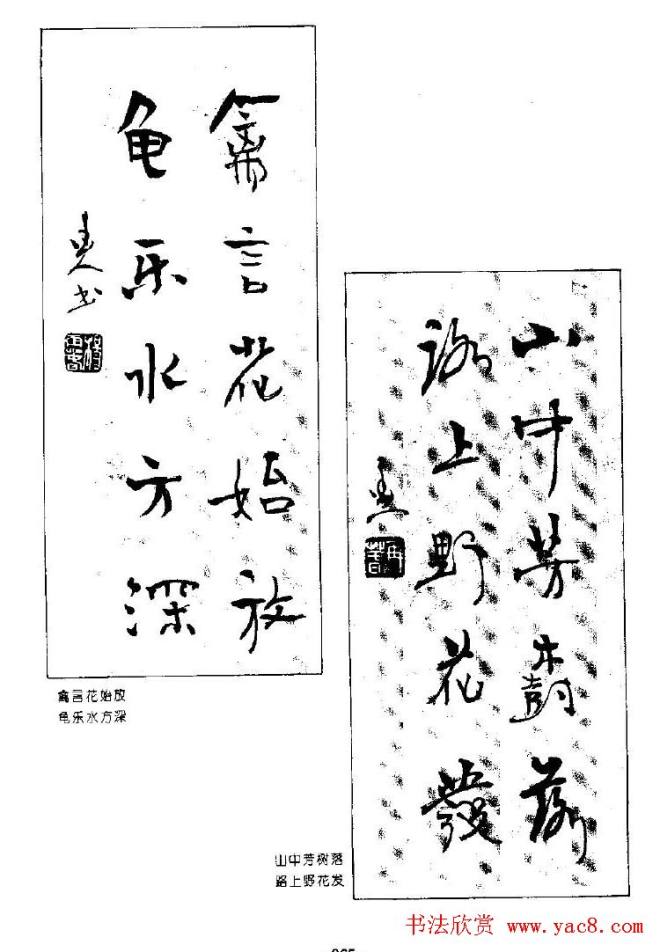 禽言花始放
龟乐水方深
书
禽言花始放
龟乐水方深
山中芳樹落
路上野花發
山中芳树落
路上野花发
书法欣赏 www.yac8.com